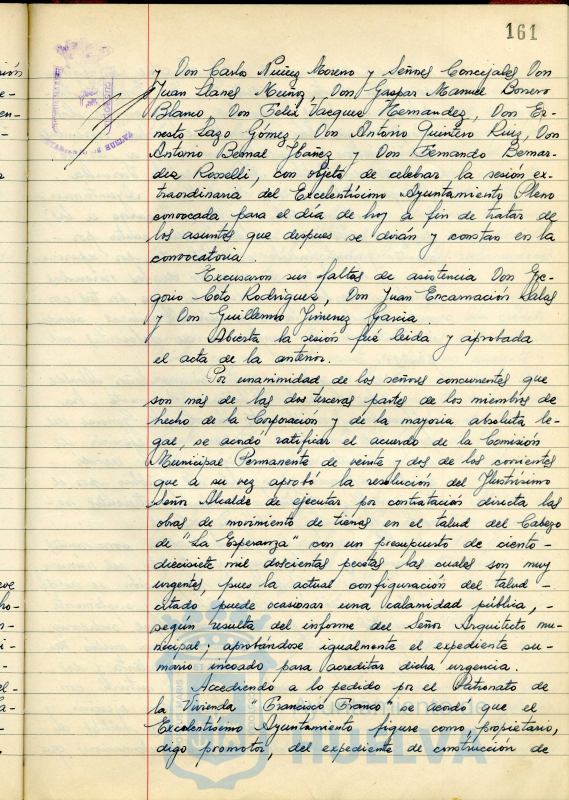 161
y Don Carlos Núñez Moreno y Señores Concejales Don
Juan Llanes Muñoz, Don Gaspar Manuel Borrero
Blanco Don Felix Vacques Hernandez, Don Er-
nesto Lazo Gómez, Don Antonio Quintero Ruiz, Don
Antonio Bernal Ibañez y Don Fernando Bernar-
dez Rosselli, con objeto de celebrar la sesión ex-
traordinaria del Excelentísimo Ayuntamiento Pleno
convocada para el día de hoy a fin de tratar de
los asuntos que despues se dirán y constan en la
convocatoria.
Excusaron sus faltas de asistencia Don Gre-
gorio Coto Rodriguez, Don Juan Encarnación Salas
y Don Guillermo Jimenez Garcia.
Abierta la sesión fué leida y aprobada
el acta de la anterior.
Por unanimidad de los señores concurrentes que
son más de las dos terceras partes de los miembros de
hecho de la Corporación y de la mayoria absoluta le-
gal, se acordó ratificar el acuerdo de la Comisión
Municipal Permanente de veinte y dos de los corrientes
que a su vez aprobó la resolución del Ilustrísimo
Señor Alcalde de ejecutar por contratación directa las
obras de movimiento de tierras en el talud del Cabezo
de "La Esperanza" con un presupuesto de ciento-
diecisiete mil doscientas pesetas las cuales son muy
urgentes, pues la actual configuración del talud -
citado puede ocasionar una calamidad pública, -
según resulta del informe del Señor Arquitecto mu-
nicipal; aprobándose igualmente el expediente su-
mario incoado para acreditar dicha urgencia.
Accediendo a lo pedido por el Patronato de
la Vivienda "Francisco Franco" se acordó que el
Excelentísimo Ayuntamiento figure como, propietario,
digo promotor, del expediente de construcción de
HUELVA